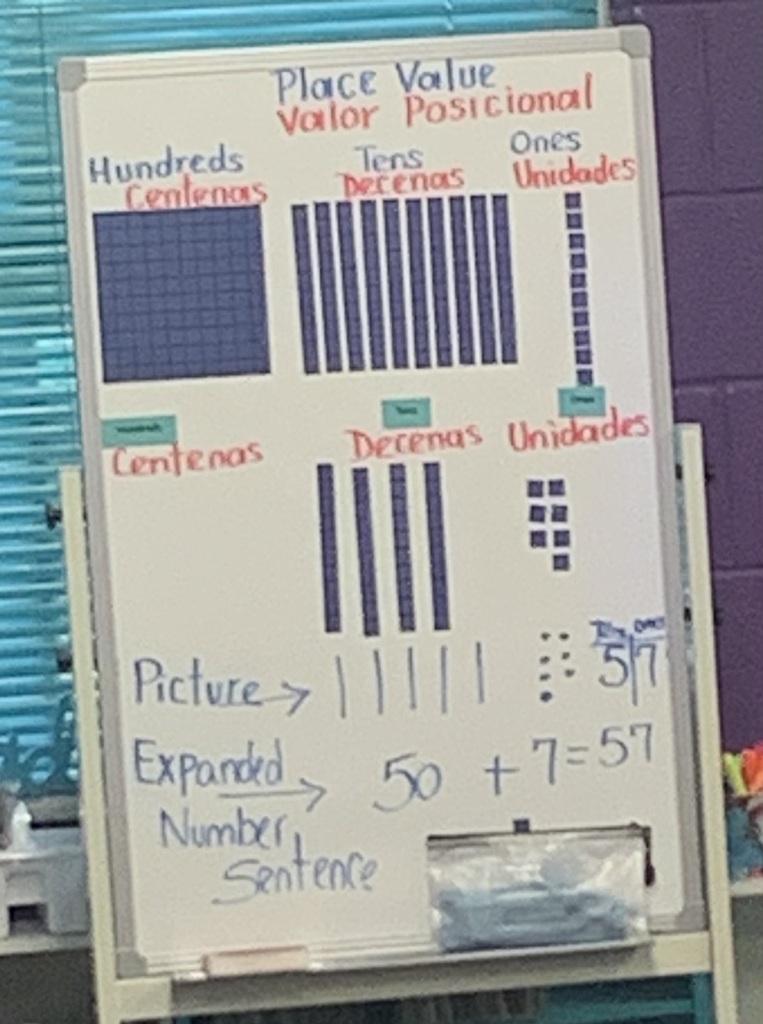 Place Value
Valor Posicional
Hundreds Tens Ones
Centenas Decenas Unidades
Centenas Decenas Unidades
Picture →
5|7
Expanded → 50 + 7 = 57
Number
Sentence